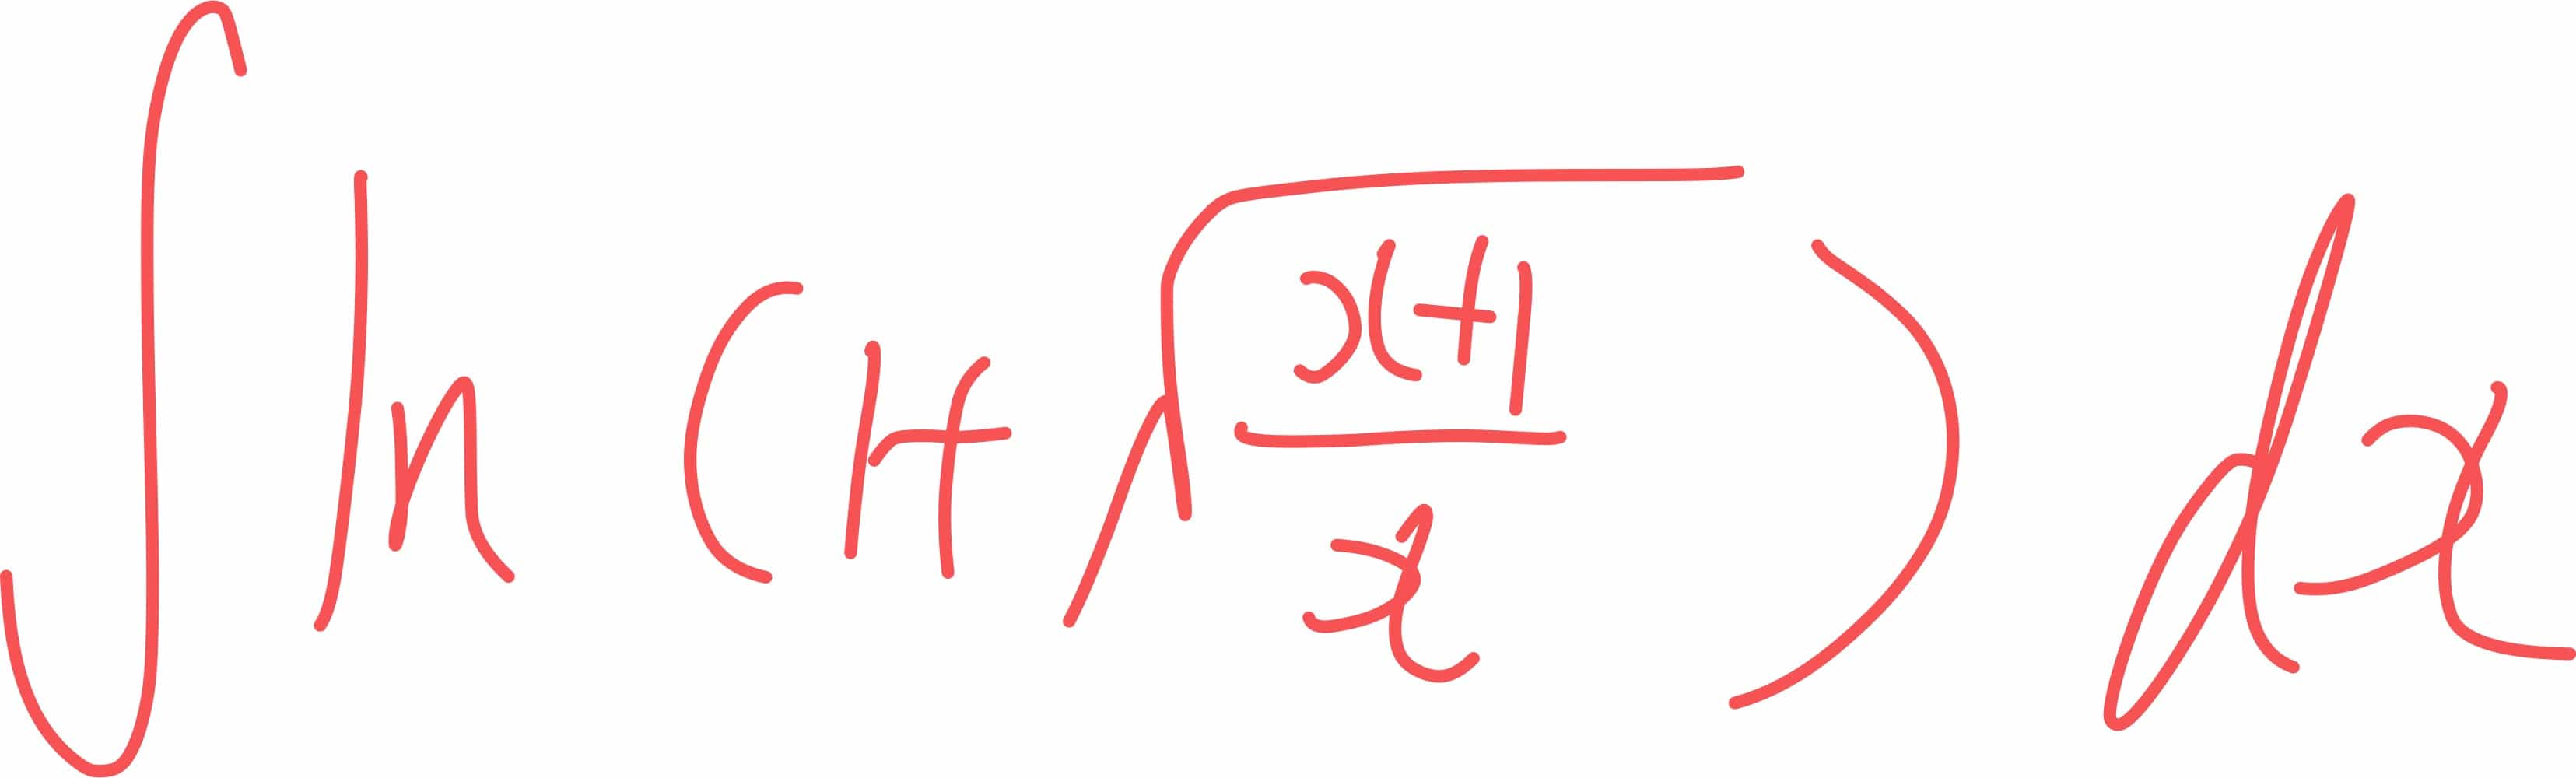 ∫ ln (1+√((x+1)/x)) dx